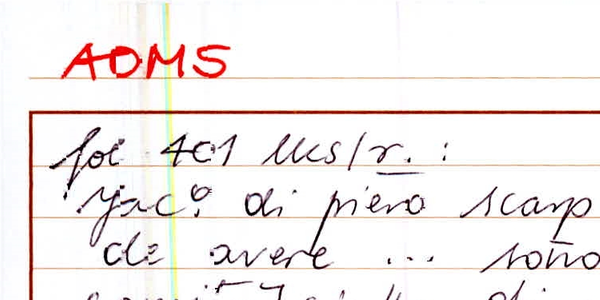 AOMS
fol 401 lks/r. :
Jac.º di piero scarp
de avere ... sono
di